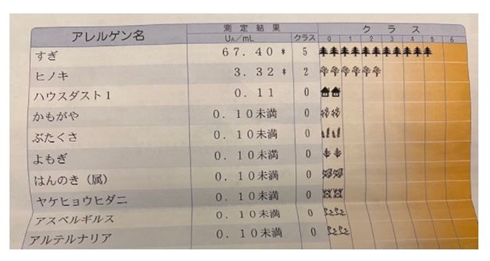 アレルゲン名 測定結果 UA/mL クラス クラス 0 1 2 3 4 5 6
すぎ 67.40 * 5
ヒノキ 3.32 * 2
ハウスダスト1 0.11 0
かもがや 0.10未満 0
ぶたくさ 0.10未満 0
よもぎ 0.10未満 0
はんのき(属) 0.10未満 0
ヤケヒョウヒダニ 0.10未満 0
アスペルギルス 0.10未満 0
アルテルナリア 0.10未満 0